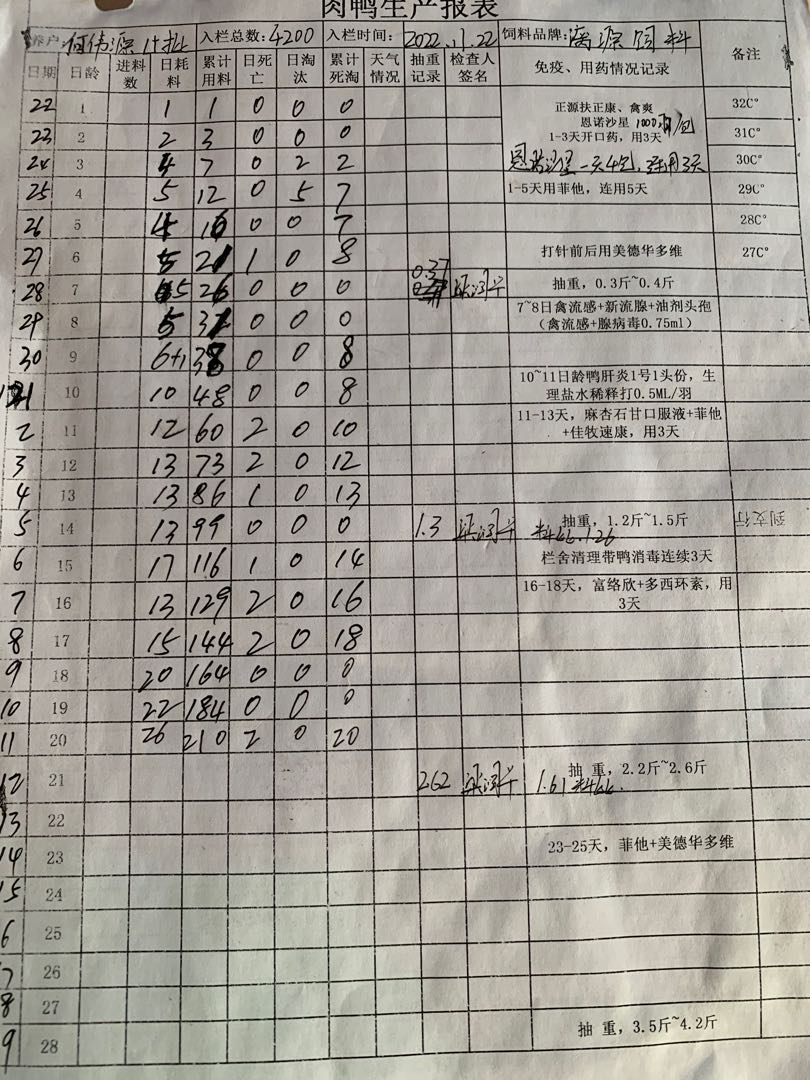 肉鸭生产报表
养户 何伟源 计批 入栏总数:4200 入栏时间: 2022.11.22 饲料品牌:离源饲料 备注
日期 日龄 进料数 日耗料 累计用料 日死亡 日淘汰 累计死淘 天气情况 抽重记录 检查人签名 免疫、用药情况记录
22 1 1 1 0 0 0 正源扶正康、禽爽 32C°
恩诺沙星 1000羽/包
23 2 2 3 0 0 0 1-3天开口药,用3天 31C°
24 3 4 7 0 2 2 恩诺沙星一天4包,连用3天 30C°
25 4 5 12 0 5 7 1-5天用菲他,连用5天 29C°
26 5 4 16 0 0 7 28C°
27 6 5 21 1 0 8 打针前后用美德华多维 27C°
28 7 5 26 0 0 0 0.37 抽重,0.3斤~0.4斤
29 8 5 31 0 0 0 7~8日禽流感+新流腺+油剂头孢
(禽流感+腺病毒0.75ml)
30 9 6+1 38 0 0 8
10 10 48 0 0 8 10~11日龄鸭肝炎1号1头份,生
理盐水稀释打0.5ML/羽
2 11 12 60 2 0 10 11-13天,麻杏石甘口服液+菲他
+佳牧速康,用3天
3 12 13 73 2 0 12
4 13 13 86 1 0 13
5 14 13 99 0 0 0 1.3 抽重,1.2斤~1.5斤 到支行
料 1.26
6 15 17 116 1 0 14 栏舍清理带鸭消毒连续3天
7 16 13 129 2 0 16 16-18天,富络欣+多西环素,用
3天
8 17 15 144 2 0 18
9 18 20 164 0 0 0
10 19 22 184 0 0 0
11 20 26 210 2 0 20
12 21 262 抽 重,2.2斤~2.6斤
1.61 料
13 22
14 23 23-25天,菲他+美德华多维
15 24
6 25
7 26
8 27
9 28 抽 重,3.5斤~4.2斤